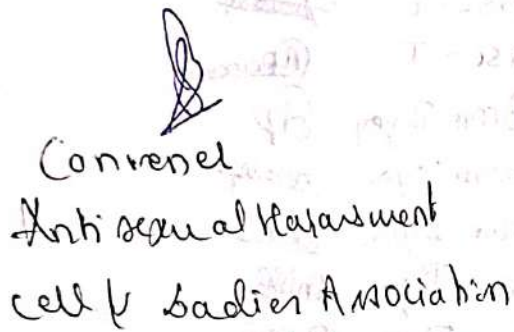 Convenel
Anti sexual Harassment
cell & Ladies Association